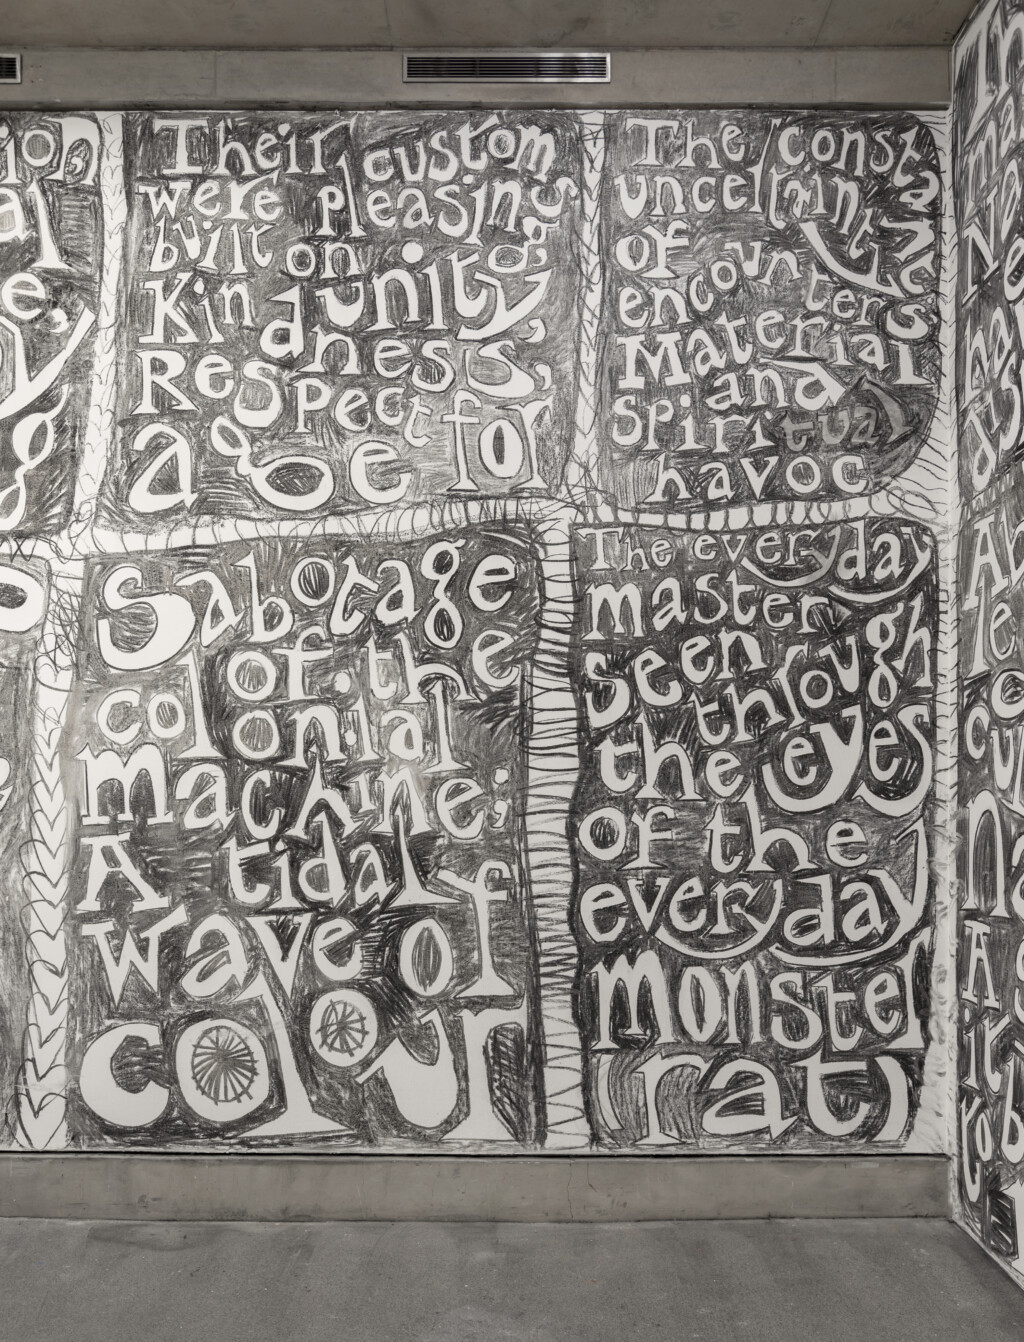 Their customs
were pleasing,
built on
Kind unity,
dness,
Respect for
age
The consta
uncertainty
of
encounters
Material
and
spiritual
havoc
Sabotage
of the
colonial
machine;
A tidal
wave of
colour
The everyday
master
seen
through
the eyes
of the
everyday
Monster
(rat)